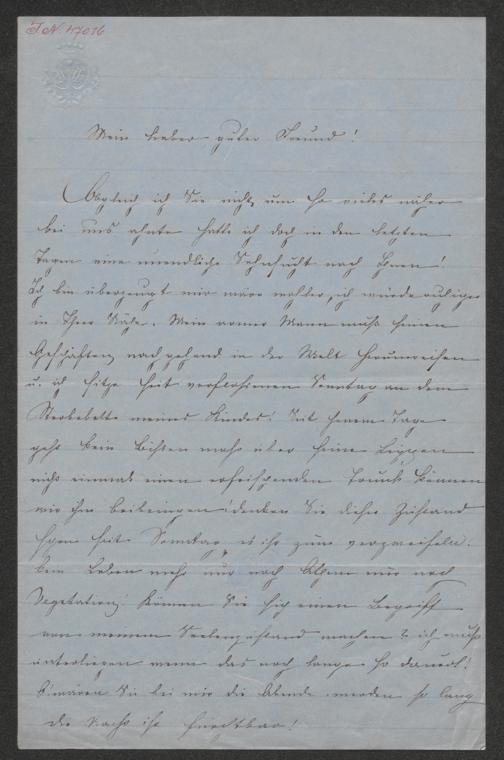 I.N. 47016
Mein lieber guter Freund!
Obgleich ich Sie nicht um so vieles näher
bei uns ahnte hatte ich doch in den letzten
Tagen eine unendliche Sehnsucht nach Ihnen!
Ich bin überzeugt mir wäre wohler, ich würde ruhiger
in Ihrer Nähe. Mein armer Mann muß seinen
Geschäften nachgehend in der Welt herumreisen
u. ich sitze seit verflossenen Sonntag an dem
Sterbebette meines Kindes! Seit jenem Tage
geht kein Bissen mehr über seine Lippen
nicht einmal einen erfrischenden Trunk können
wir ihm beibringen! denken Sie diesen Zustand
schon seit Sonntag es ist zum verzweifeln.
Kein Leben mehr nur noch Athem nur noch
Vegetation! Können Sie sich einen Begriff
von meinem Seelenzustand machen? ich muß
unterliegen wenn das noch lange so dauert!
O! wären Sie bei mir die Abende werden so lang
die Nacht ist furchtbar!